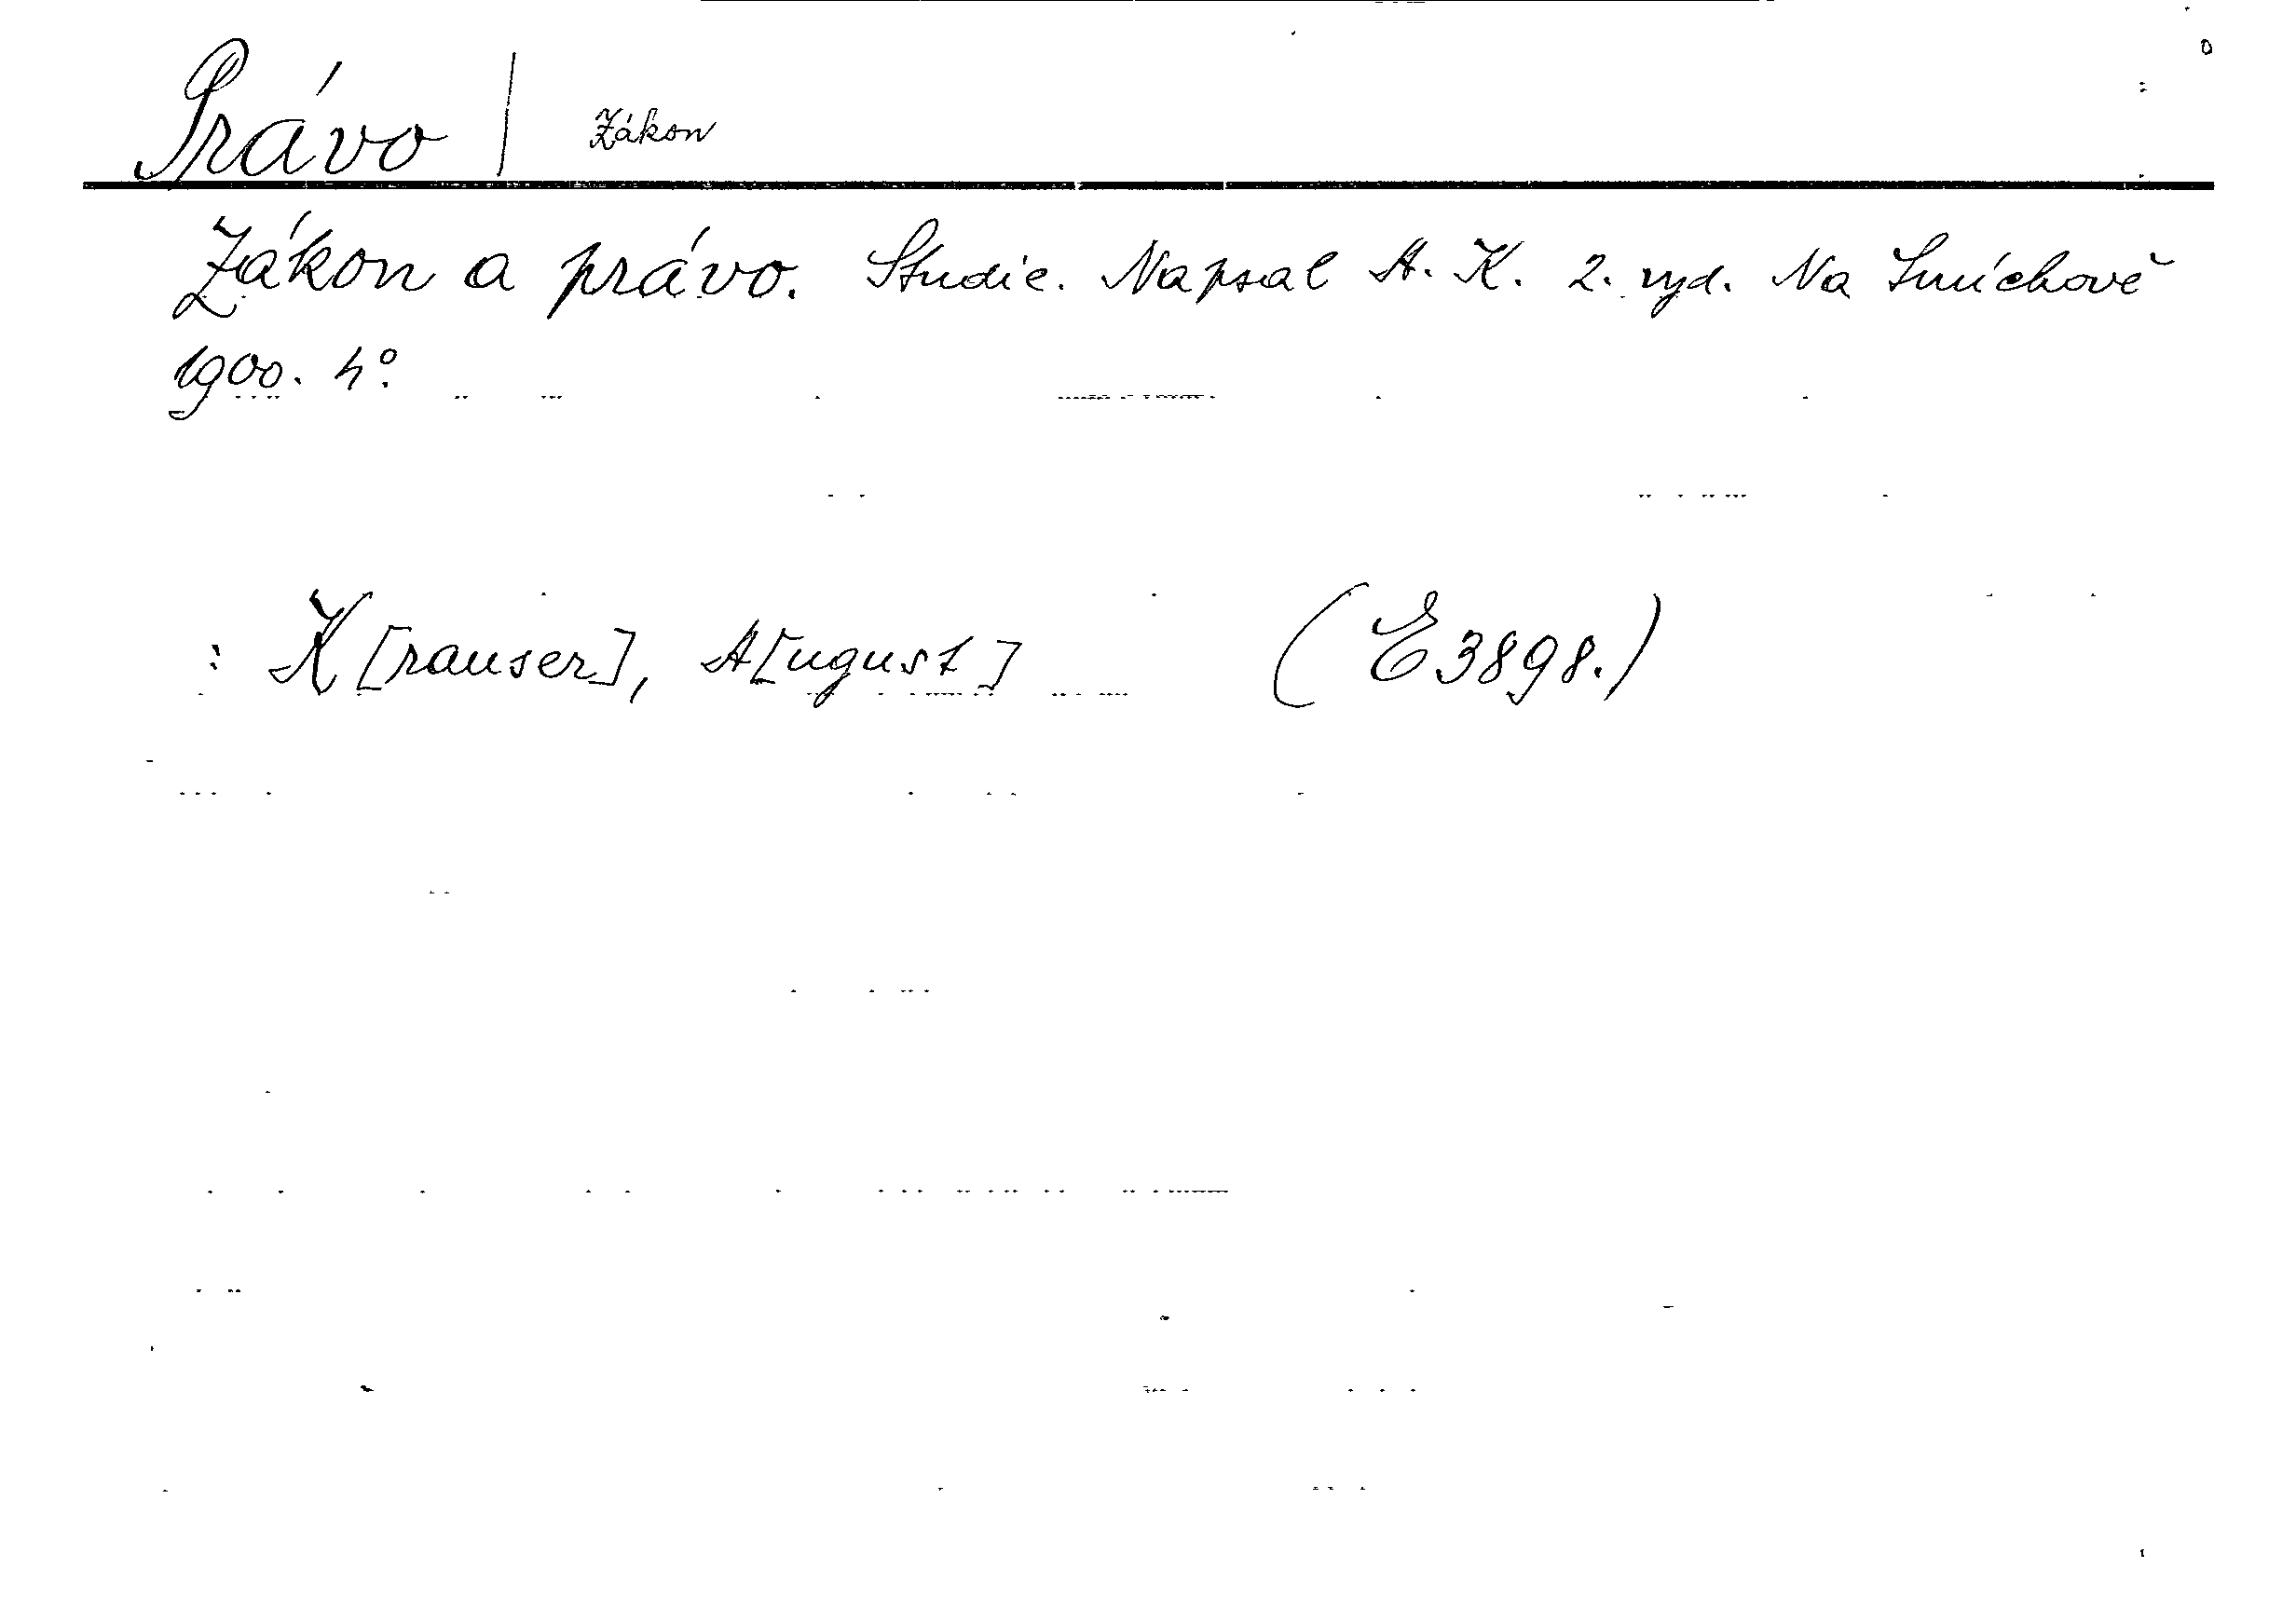 Právo | Zákon
Zákon a právo. Studie. Napsal A. K. 2. vyd. Na Smíchově
1900. 4°.
: K[rauser], A[ugust] (E 3898.)